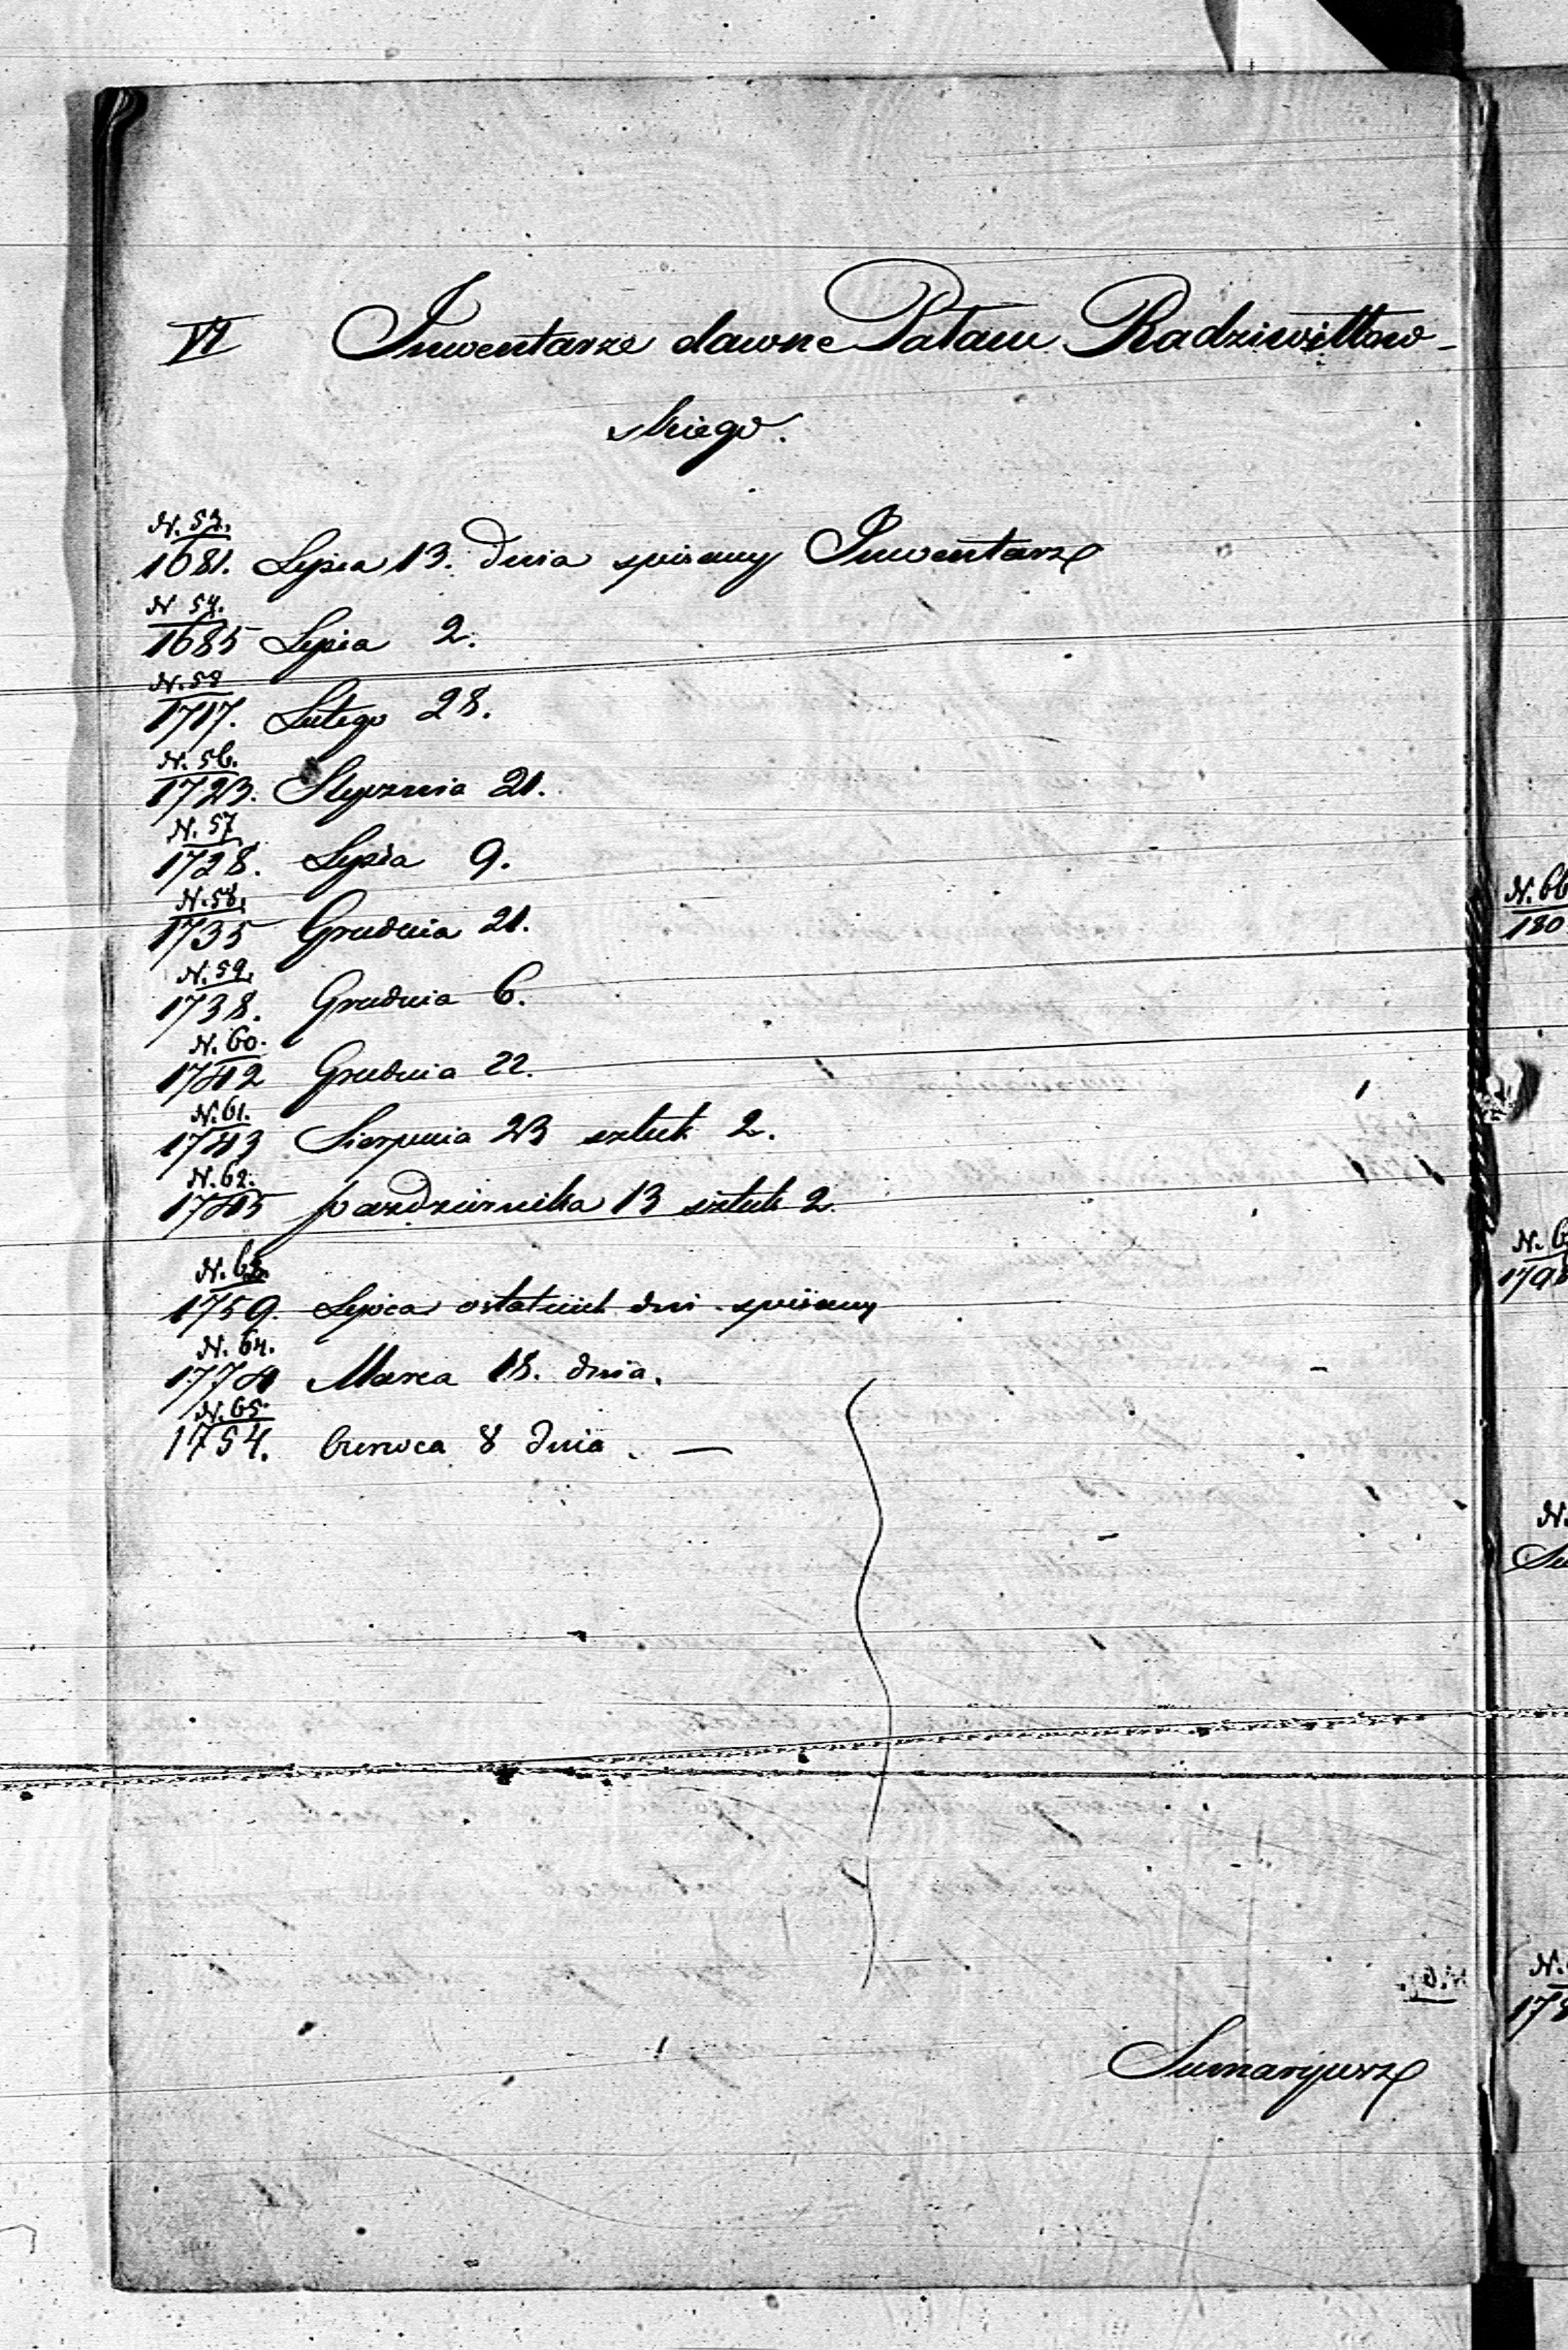 VI Inwentarze dawne Pałacu Radziwiłłow-
skiego.
N. 53.
1681. Lipca 13. Dnia spisany Inwentarz
N 54.
1685 Lipca 2.
N. 55
1717. Lutego 28.
N. 56.
1723. Stycznia 21.
N. 57
1728. Lipca 9.
N. 58.
1735 Grudnia 21.
N. 59.
1738. Grudnia 6.
N. 60.
1742 Grudnia 22.
N. 61.
1743 Sierpnia 23 sztuk 2.
N. 62.
1745 pazdziernika 13 sztuk 2.
N. 63.
1759. Lipca ostatnich dni spisany
N. 64.
1774 Marca 18. dnia.
N. 65.
1754. Czerwca 8 Dnia. —
Sumaryusz
N. 66
180
N. 6
1798
N.
N.
178